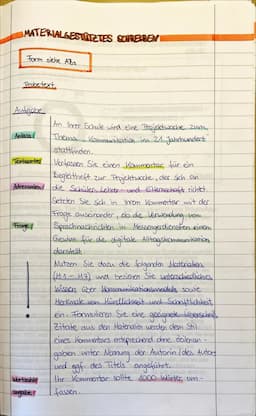 MATERIALGESTÜTZTES SCHREIBEN
Form siehe ABs
Probetext
Aufgabe
An Ihrer Schule wird eine Projektwoche zum
Anlass
Thema Kommunikation im 21. Jahrhundert
stattfinden.
Textsorte
Verfassen Sie einen Kommentar für ein
Begleitheft zur Projektwoche, der sich an
Adressaten
die Schüler-, Lehrer- und Elternschaft richtet.
Setzen Sie sich in Ihrem Kommentar mit der
Frage auseinander, ob die Verwendung von
Frage
Sprachnachrichten in Messengerdiensten einen
Gewinn für die digitale Alltagskommunikation
darstellt.
Nutzen Sie dazu die folgenden Materialien
(M1 - M7) und beziehen Sie unterschiedliches
Wissen über Kommunikationsmodelle sowie
Merkmale von Mündlichkeit und Schriftlichkeit
ein. Formulieren Sie eine geeignete Überschrift.
Zitate aus den Materialien werden dem Stil
eines Kommentars entsprechend ohne Zeilenan-
gaben unter Nennung der Autorin / des Autors
und ggf. des Titels angeführt.
Wortanzahl
Ihr Kommentar sollte 1000 Wörter um-
fassen.